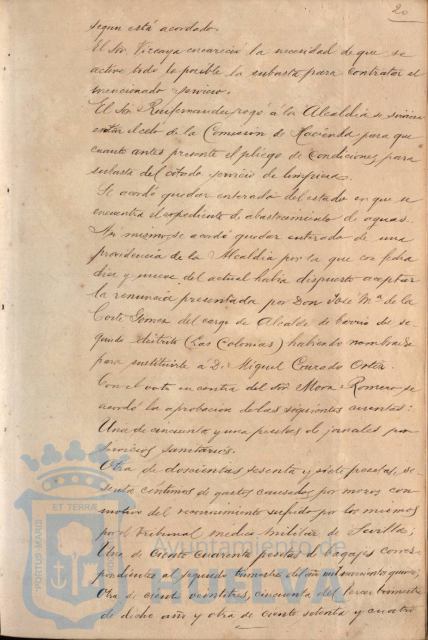 20
segun está acordado.
El Sor. Vizcaya encareció la necesidad de que se
active todo lo posible la subasta para contratar el
mencionado servicio.
El Sor. Ruifernandez rogó á la Alcaldia se sirviera
excitar el celo de la Comision de Hacienda para que
cuanto antes presente el pliego de condiciones para
subasta del citado servicio de limpieza.
Se acordó quedar enterado del estado en que se
encuentra el expediente de abastecimiento de aguas.
Asi mismo, se acordó quedar enterado de una
providencia de la Alcaldia por la que con fecha
diez y nueve del actual habia dispuesto aceptar
la renuncia presentada por Don José Mª de la
Corte Gomez del cargo de Alcalde de barrio del se-
gundo distrito (Las Colonias) habiendo nombrado
para sustituirle á D. Miguel Conrado Ortiz.
Con el voto en contra del Sor. Mora Romero se
acordó la aprobacion de las siguientes cuentas:
Una de cincuenta y una pesetas de jornales por
servicios sanitarios.
Otra de doscientas sesenta y siete pesetas, se-
senta céntimos de gastos causados por mozos con
motivo del reconocimiento sufrido por los mismos
por el Tribunal medico militar de Sevilla;
Una de ciento cuarenta pesetas de bagajes corres-
pondientes al segundo trimestre del año mil novecientos quince;
Otra de ciento veintitres, cincuenta del tercer trimestre
de dicho año y otra de ciento setenta y cuatro
PORTUS MARIS
ET TERRÆ
CUSTODIA
Ayuntamiento de
HUELVA